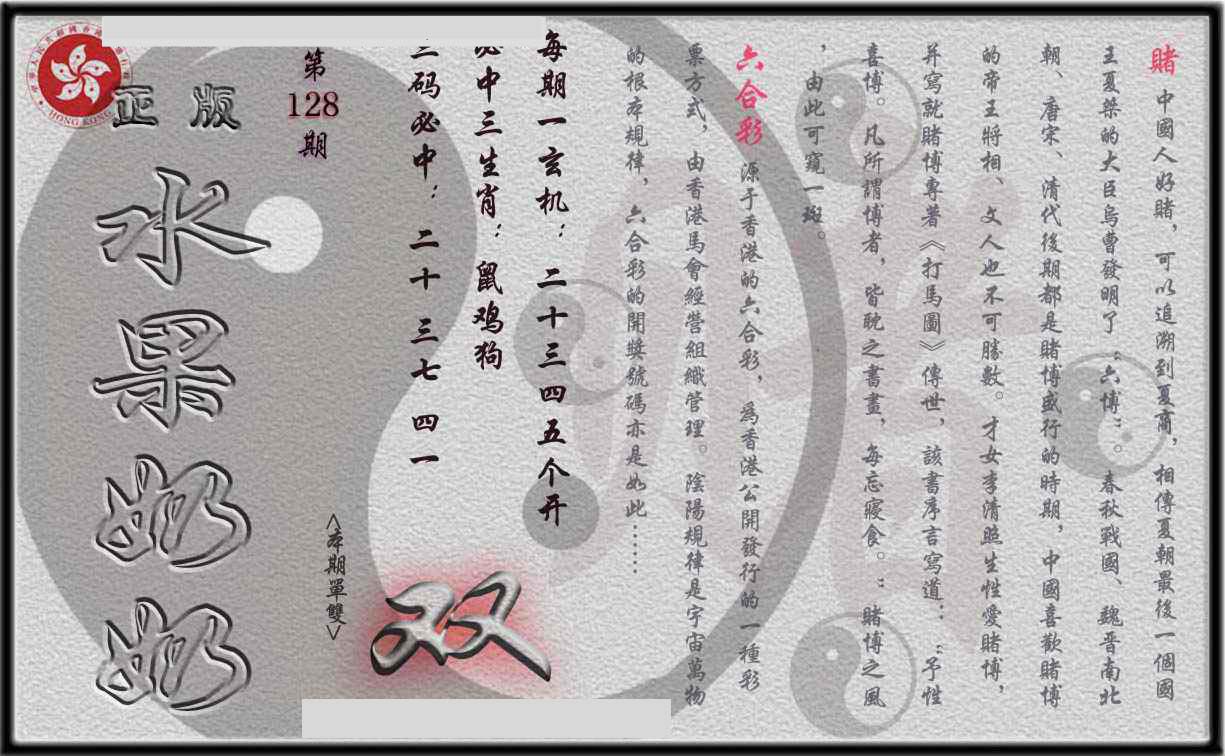 賭 中國人好賭，可以追溯到夏商，相傳夏朝最後一個國
王夏桀的大臣烏曹發明了“六博”。春秋戰國、魏晉南北
朝、唐宋、清代後期都是賭博盛行的時期，中國喜歡賭博
的帝王將相、文人也不可勝數。才女李清照生性愛賭博，
并寫就賭博專著《打馬圖》傳世，該書序言寫道：“予性
喜博。凡所謂博者，皆耽之書畫，每忘寢食。”賭博之風
，由此可窺一斑。
六合彩 源于香港的六合彩，為香港公開發行的一種彩
票方式，由香港馬會經營組織管理。陰陽規律是宇宙萬物
的根本規律，六合彩的開獎號碼亦是如此……
每期一玄机：二十三四五个开
必中三生肖：鼠鸡狗
三码必中：二十 三七 四一
第
128
期
<本期單雙>
双
正版
水果奶奶
HONG KONG